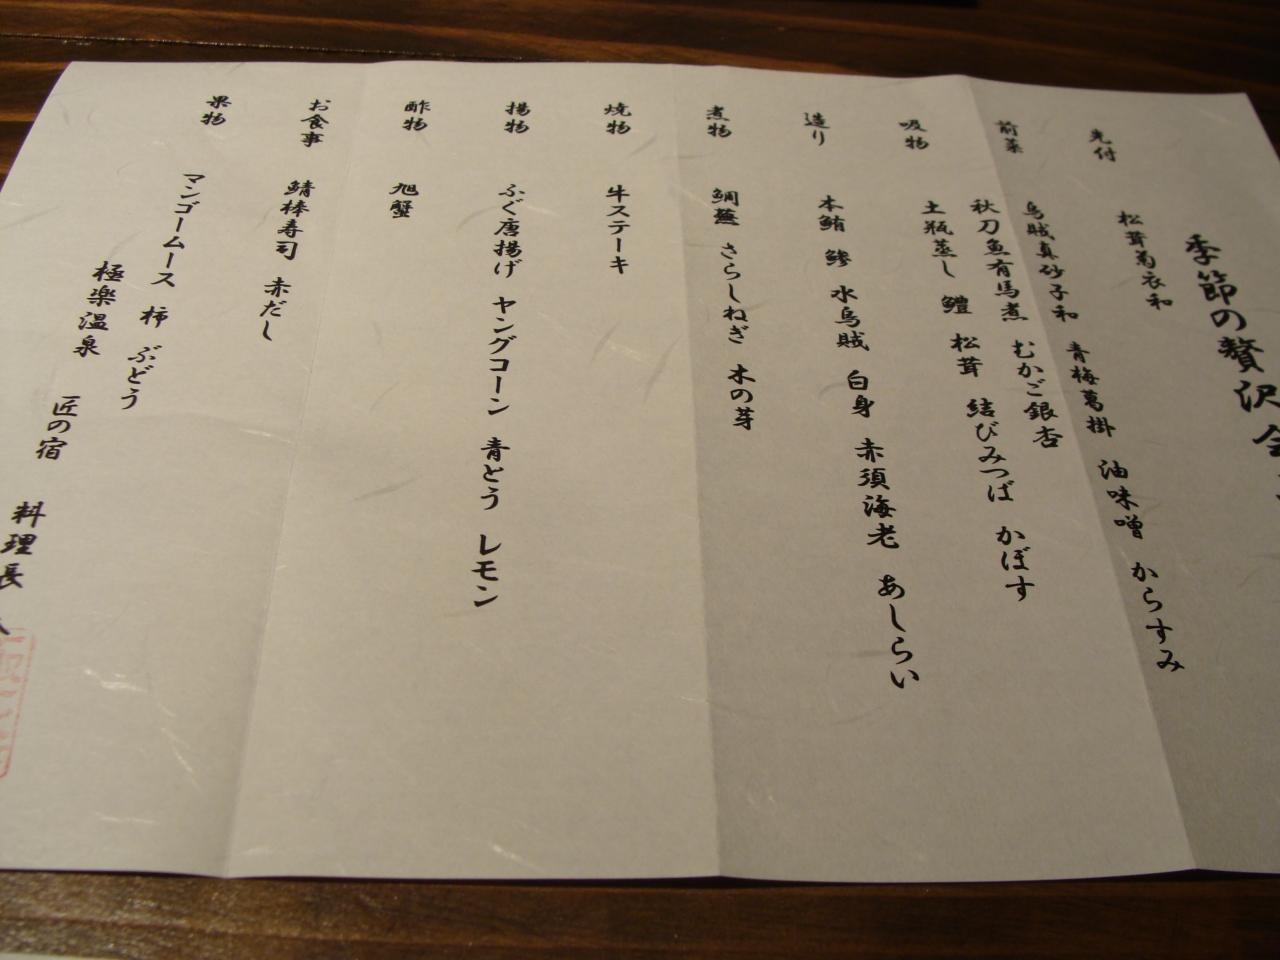 季節の贅沢会
先付
松茸菊衣和
前菜
烏賊真砂子和 青梅葛掛 油味噌 からすみ
秋刀魚有馬煮 むかご銀杏
吸物
土瓶蒸し 鱧 松茸 結びみつば かぼす
造り
本鮪 鰺 水烏賊 白身 赤須海老 あしらい
煮物
鯛蕪 さらしねぎ 木の芽
焼物
牛ステーキ
揚物
ふぐ唐揚げ ヤングコーン 青とう レモン
酢物
旭蟹
お食事
鯖棒寿司 赤だし
果物
マンゴームース 柿 ぶどう
極楽温泉 匠の宿 料理長